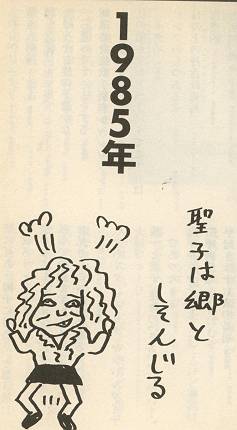 1985年
聖子は郷と
しそんじる